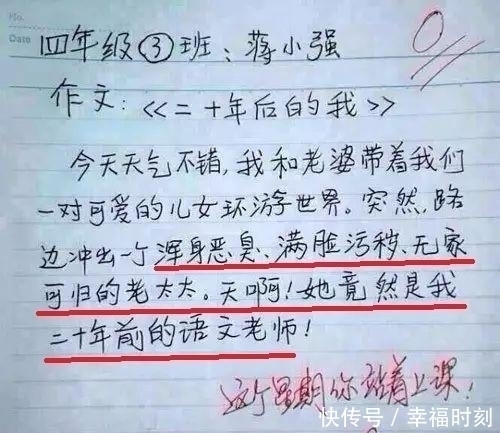 No.
Date
0
四年级③班：蒋小强
作文：《二十年后的我》
今天天气不错，我和老婆带着我们
一对可爱的儿女环游世界。突然，路
边冲出一个浑身恶臭、满脸污秽、无家
可归的老太太。天啊！她竟然是我
二十年前的语文老师！
这个星期你站着上课！
快传号／幸福时刻